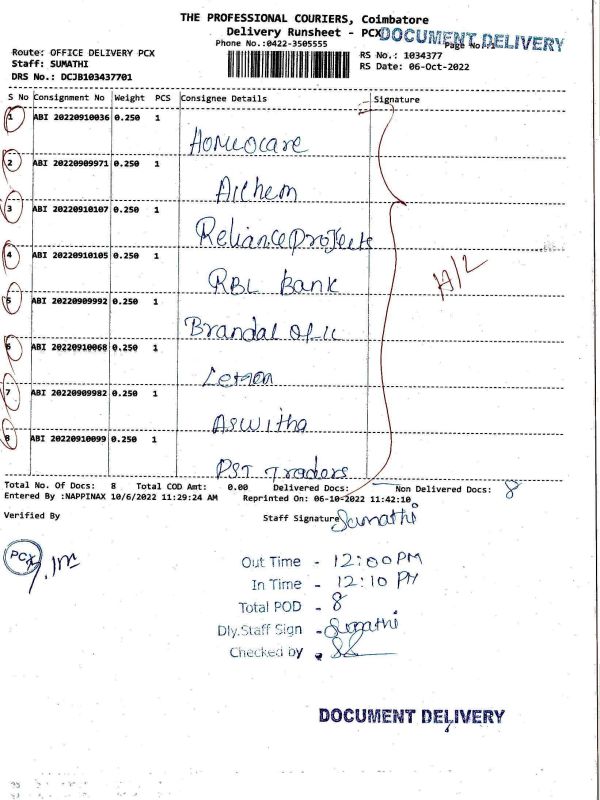 THE PROFESSIONAL COURIERS, Coimbatore
Delivery Runsheet - PCX
DOCUMENT DELIVERY
Phone No.:0422-3505555
Page No.:1
Route: OFFICE DELIVERY PCX
RS No.: 1034377
Staff: SUMATHI
RS Date: 06-Oct-2022
DRS No.: DCJB103437701
S No Consignment No Weight PCS Consignee Details Signature
1 ABI 20220910036 0.250 1
Homeocare
2 ABI 20220909971 0.250 1
Ailhem
3 ABI 20220910107 0.250 1
Reliance Projects
4 ABI 20220910105 0.250 1
RBL Bank
H/L
5 ABI 20220909992 0.250 1
Brandal of
6 ABI 20220910068 0.250 1
7 ABI 20220909982 0.250 1
Aswitha
8 ABI 20220910099 0.250 1
PST Traders
Total No. Of Docs: 8 Total COD Amt: 0.00 Delivered Docs: Non Delivered Docs: 8
Entered By :NAPPINAX 10/6/2022 11:29:24 AM Reprinted On: 06-10-2022 11:42:10
Verified By Staff Signature Sumathi
PCX
Out Time - 12:00 PM
In Time - 12:10 PM
Total POD - 8
Dly.Staff Sign - Sumathi
Checked by -
DOCUMENT DELIVERY